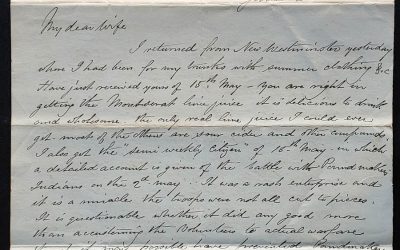 My dear Wife
I returned from New Westminster yesterday
where I had been for my trunks with summer clothing &c
Have just received yours of 15th May - You are right in
getting the Montserrat lime juice it is delicious to drink
and wholesome the only real lime juice I could ever
get most of the others are sour cider and other compounds
I also got the "semi weekly citizen" of 16th May in which
a detailed account is given of the battle with Poundmakers
Indians on the 2d May. It was a rash enterprise and
it is a miracle the troops were not all cut to pieces.
It is questionable whether it did any good more
than accustoming the Volunteers to actual warfare
it may possibly have prevented Poundmaker